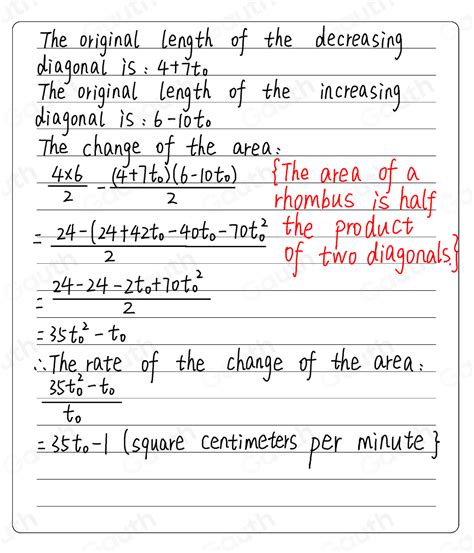 The original length of the decreasing
diagonal is: 4+7t₀
The original length of the increasing
diagonal is: 6-10t₀
The change of the area:
4×6/2 - (4+7t₀)(6-10t₀)/2 {The area of a
rhombus is half
= 24-(24+42t₀-40t₀-70t₀²/2 the product
of two diagonals.}
= 24-24-2t₀+70t₀²/2
= 35t₀²-t₀
∴ The rate of the change of the area:
35t₀²-t₀/t₀
= 35t₀-1 (square centimeters per minute}